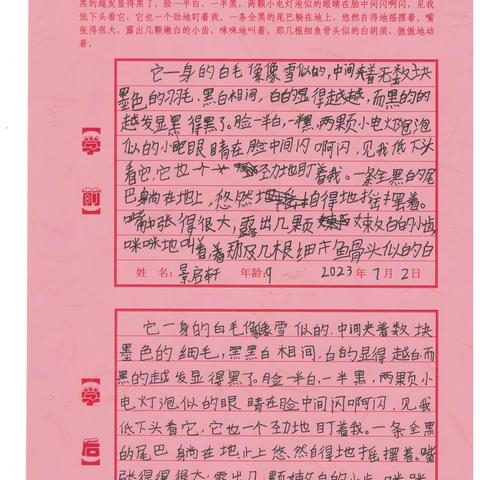 黑的越发显得黑了。脸一半白，一半黑，两颗小电灯泡似的眼睛在脸中间闪啊闪，见我
低下头看它，它也一个劲地盯着我。一条全黑的尾巴躺在地上，悠然自得地摇摆着。嘴
张得很大，露出几颗嫩白的小齿，咪咪地叫着，那几根细鱼骨头似的白胡须，傲傲地动
着。
它一身的白毛像雪似的，中间夹着无数块
墨色的羽毛，黑白相间，白的显得越越，而黑的的
越发显黑得黑了。脸一半白，一半黑，两颗小电灯泡泡
似的小眼眼睛在脸中间闪啊闪，见我低下头
看它，它也个劲地盯着我。一条全黑的尾
巴躺在地上，悠然地自得地摇摆着。
嘴张得很大，露出几颗嫩白的小齿
咪咪地叫着，那几根细鱼骨头似的白
学前
姓名：景启轩 年龄：9 2023年7月2日
它一身的白毛像雪似的，中间夹着数块
墨色的细毛，黑黑白相间，白的显得越白而
黑的越发显得黑了。脸一半白，一半黑，两颗小
电灯泡似的眼睛在脸中间闪啊闪，见我
低下头看它，它也一个劲地盯着我。一条全黑
的尾巴躺在地上悠然自得地摇摆着。嘴
张得很大，露出几颗嫩白的小齿，咪咪
学后